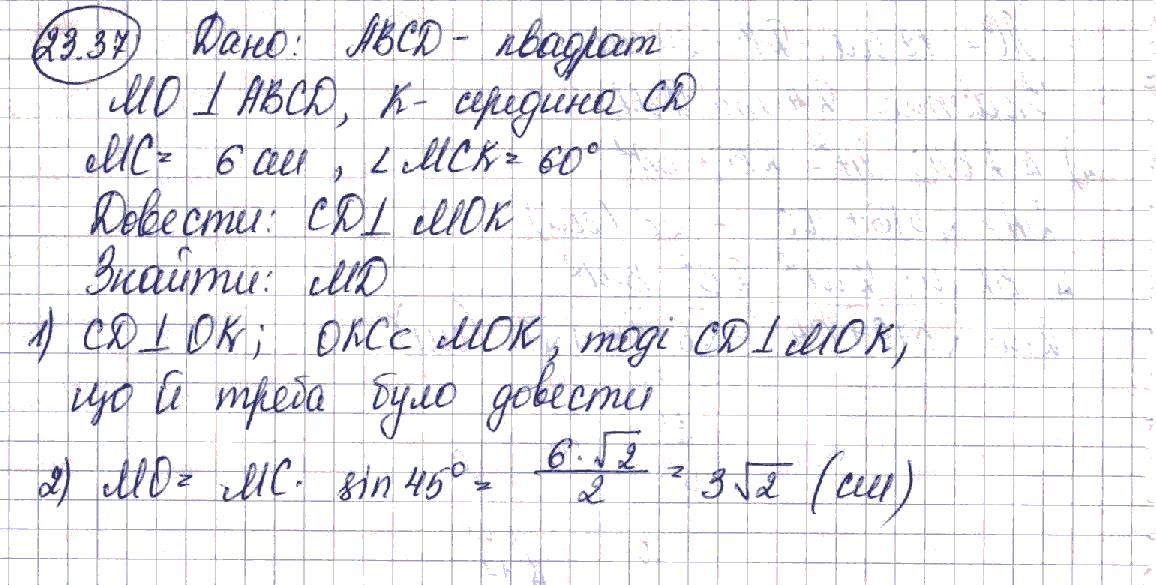 23.37) Дано: ABCD - квадрат
MO ⊥ ABCD, K - середина CD
MC = 6 см, ∠MCK = 60°
Довести: CD ⊥ MOK
Знайти: MD
1) CD ⊥ OK; OK ⊂ MOK, тоді CD ⊥ MOK,
що й треба було довести
2) MO = MC · sin 45° = 6·√2/2 = 3√2 (см)